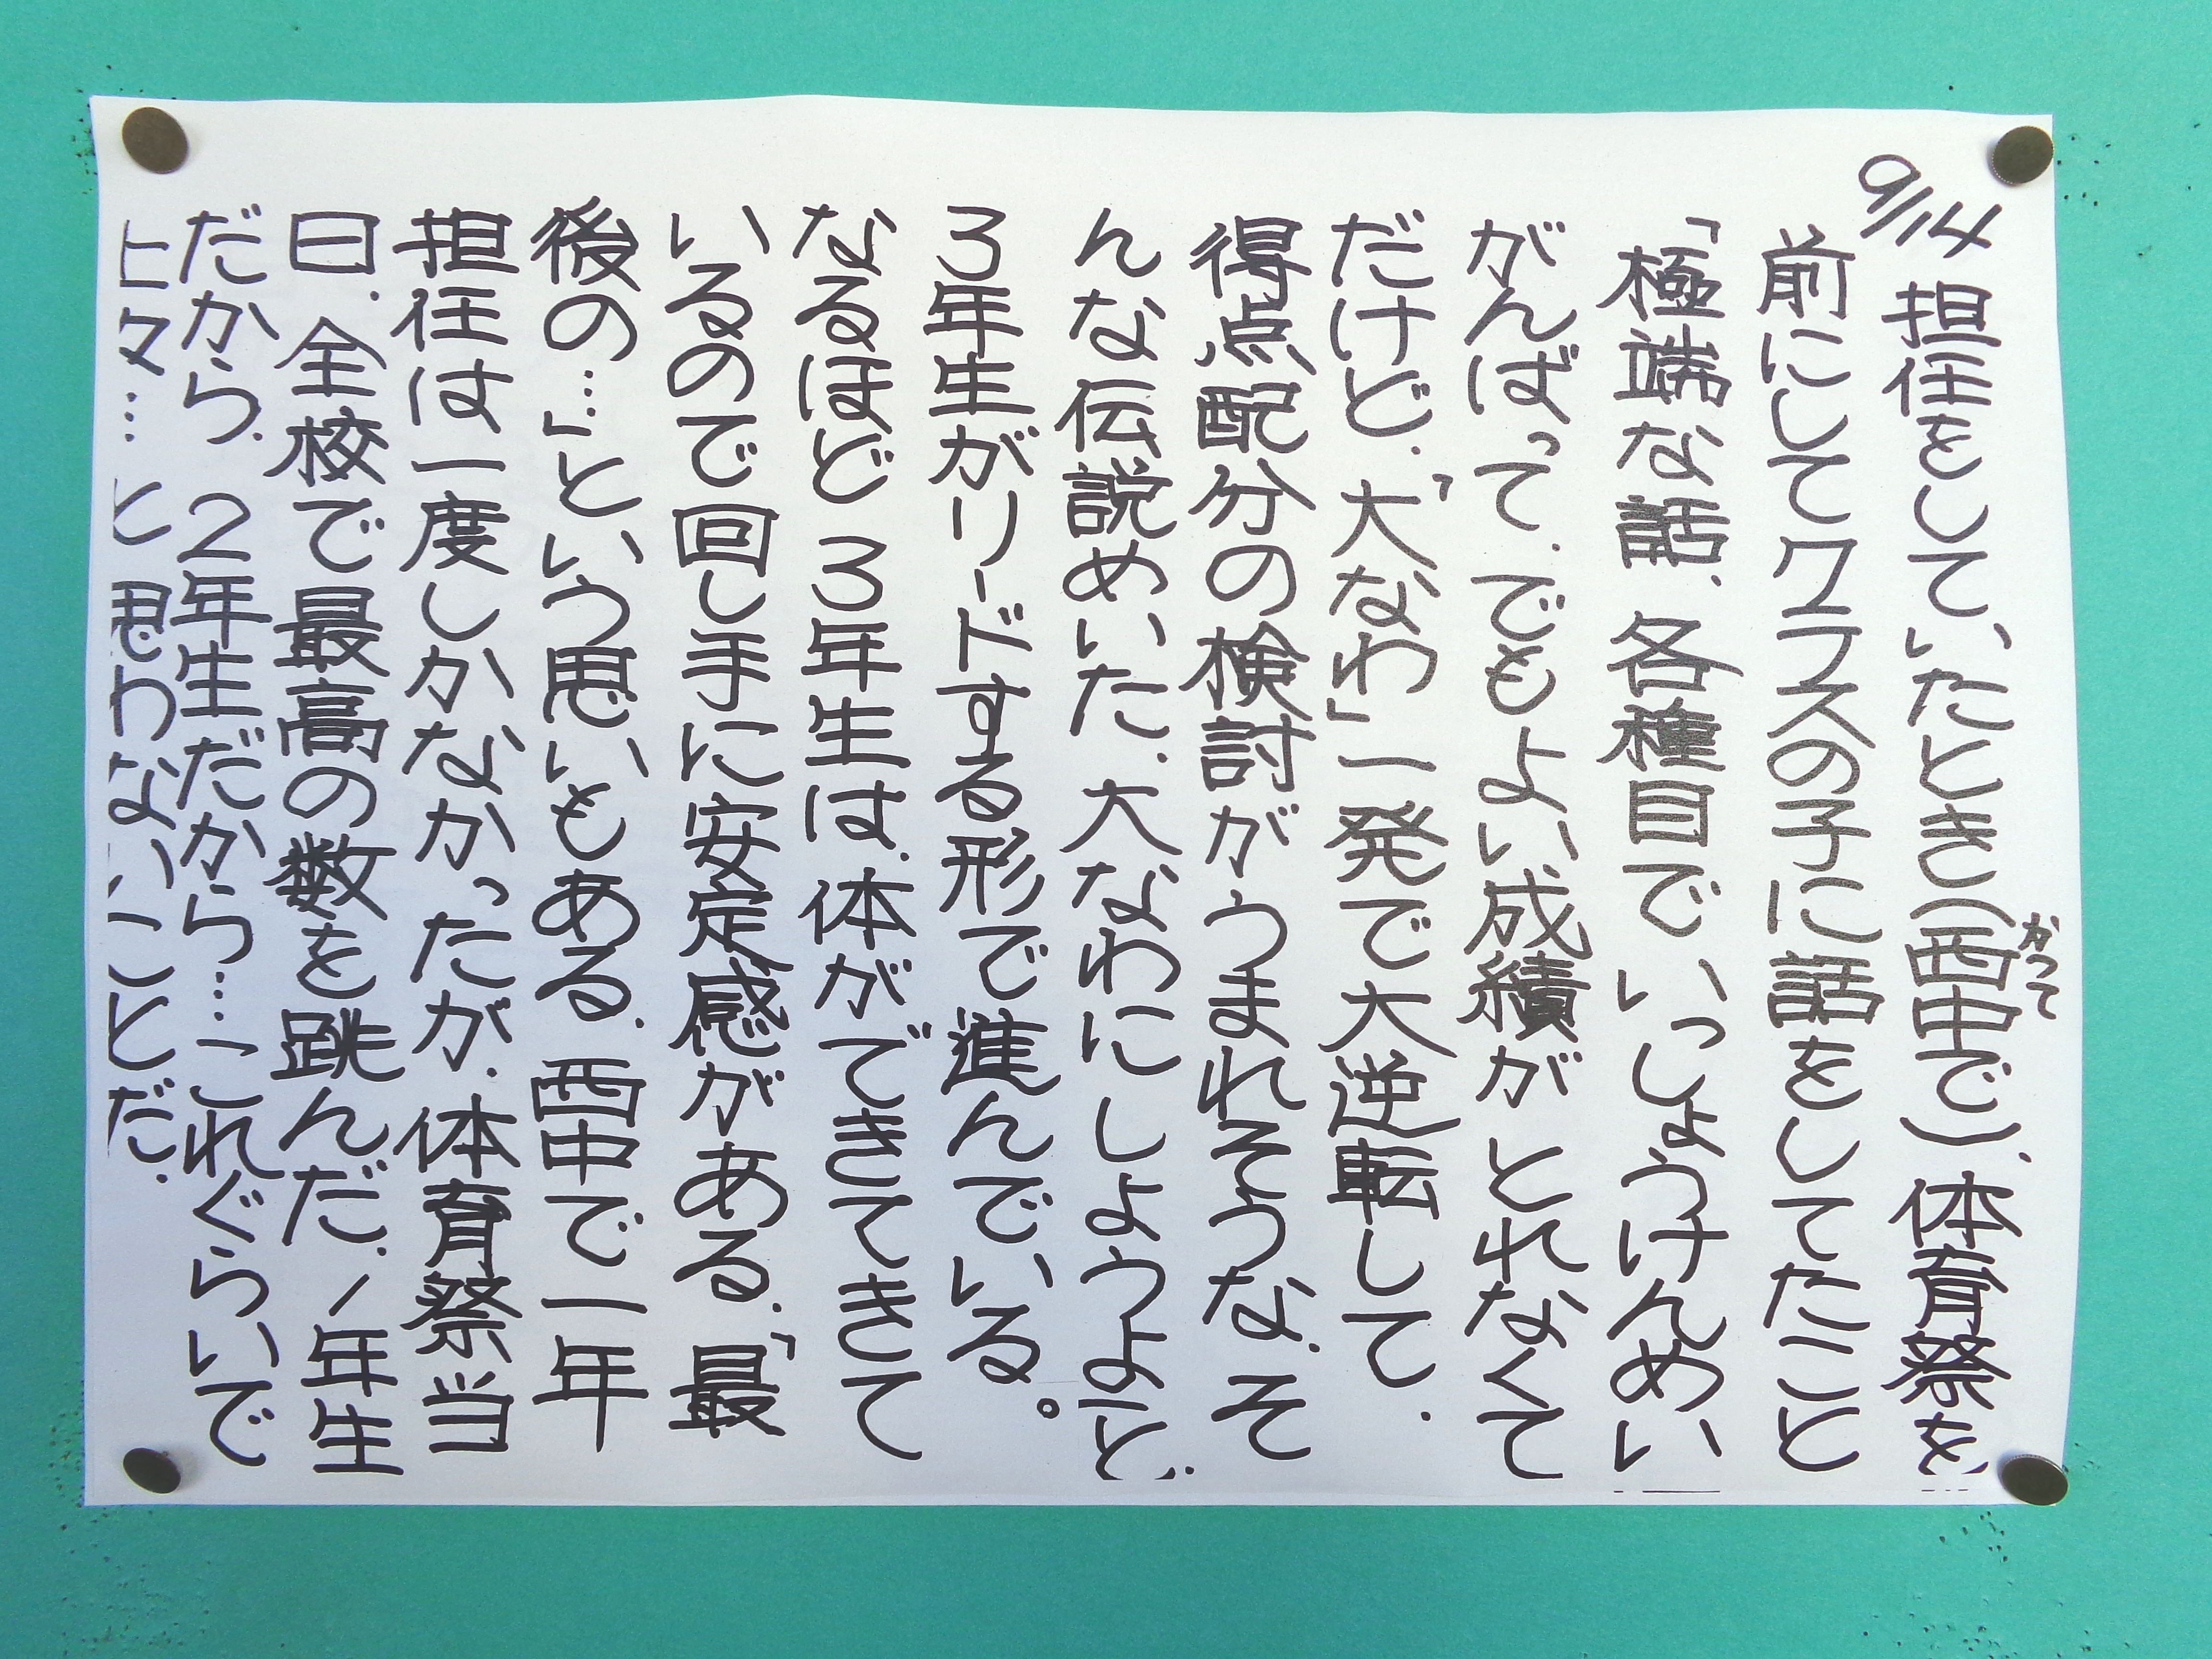 9/14 担任をして、いたとき(西中で)、体育祭を
かつて
前にしてクラスの子に話をしてたこと
「極端な話、各種目でいっしょうけんめい
がんばって、でもよい成績がとれなくて
だけど、「大なわ」一発で大逆転して、
得点配分の検討がうまれそうな、そ
んな伝説めいた、大なわにしようよと、
3年生がリードする形で進んでいる。
なるほど3年生は、体ができてきてきて
いるので回し手に安定感がある、「最
後の…」という思いもある、西中で一年
担任は一度しかなかったが、体育祭当
日、全校で最高の数を跳んだ、1年生
だから、2年生だから…これぐらいで
上々…と思わないことだ、